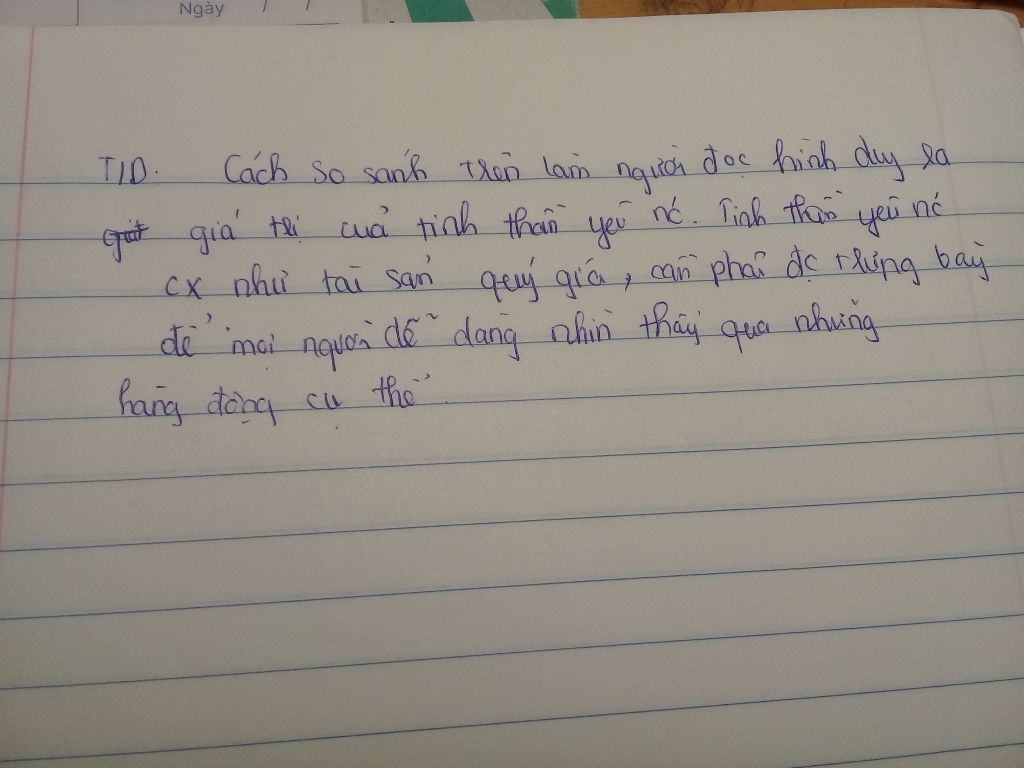 Ngày / /
TID. Cách so sánh trên làm người đọc hình duy ra
giá trị của tinh thần yêu nc. Tinh thần yêu nc
cx như tài sản quý giá, cần phải đc trưng bày
để mọi người dễ dàng nhìn thấy qua những
hàng động cụ thể.